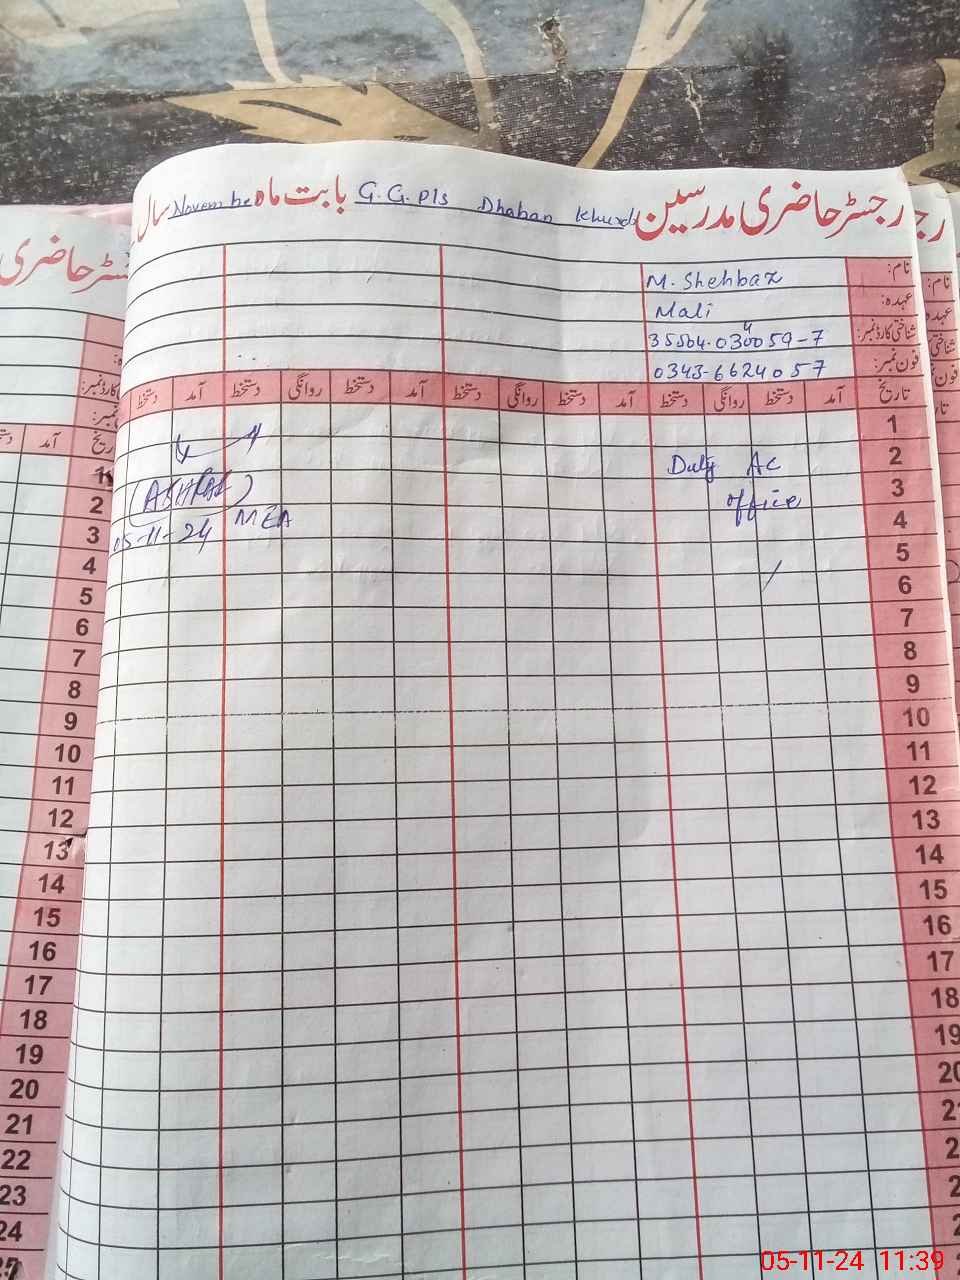 رجسٹر حاضری مدرسین G.G.Pls Dhaban Khurd بابت ماہ Novembe سال
نام: M. Shehbaz
عہدہ: Mali
شناختی کارڈ نمبر:
فون نمبر: 0343-6624057
تاریخ آمد دستخط روانگی دستخط آمد دستخط روانگی دستخط آمد دستخط روانگی دستخط آمد دستخط
1
2 Duty Ac
3 office
4
5
6
7
8
9
10
11
12
13
14
15
16
17
18
19
MEA
05-11-24
سٹر حاضری
آمد
1
2
3
4
5
6
7
8
9
10
11
12
13
14
15
16
17
18
19
20
21
22
23
24
نام:
عہدہ
05-11-24 11:39